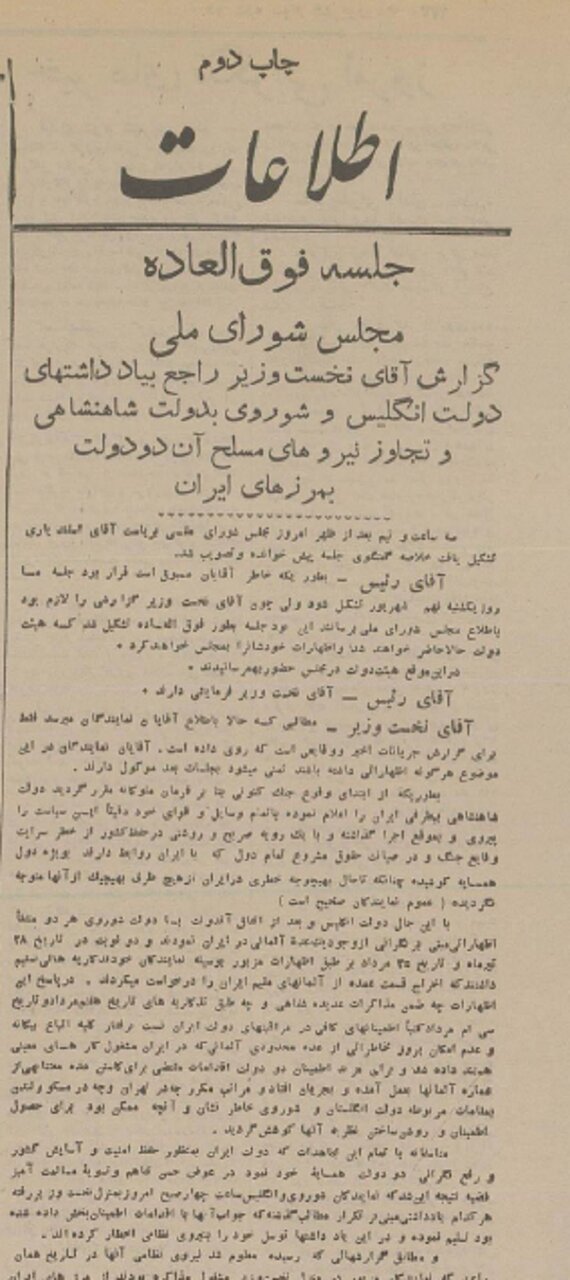 چاپ دوم
اطلاعات
جلسه فوق‌العاده
مجلس شورای ملی
گزارش آقای نخست وزیر راجع بیاد داشتهای
دولت انگلیس و شوروی بدولت شاهنشاهی
و تجاوز نیرو های مسلح آن دو دولت
بمرزهای ایران
سه ساعت و نیم بعد از ظهر امروز مجلس شورای ملی بریاست آقای اسفند یاری
تشکیل یافت خلاصه گفتگوی جلسه پیش خوانده و تصویب شد.
آقای رئیس ــ بطور یکه خاطر آقایان مسبوق است قرار بود جلسه
روز یکشنبه نهم شهریور تشکیل شود ولی چون آقای نخست وزیر گزارشی را لازم بود
باطلاع مجلس شورای ملی برسانند این بود جلسه بطور فوق العاده تشکیل شد که هیئت
دولت حالا حاضر خواهند شد و اظهارات خودشانرا بمجلس خواهند کرد .
در این موقع هیئت دولت در مجلس حضور بهمرسانیدند .
آقای رئیس ــ آقای نخست وزیر فرمایشی دارند .
آقای نخست وزیر ــ مطالبی که حالا باطلاع آقایان نمایندگان میرسد فقط
برای گزارش جریانات اخیر و وقایعی است که روی داده است . آقایان نمایندگان در این
موضوع هر گونه اظهاراتی داشته باشند تمنی میشود بجلسات بعد موکول دارند .
بطوریکه از ابتدای وقوع جنگ کنونی بنا بر فرمان ملوکانه مقرر گردید دولت
شاهنشاهی بیطرفی ایران را اعلام نموده باتمام وسایل و قوای خود دقیقاً این سیاست را
پیروی و بموقع اجرا گذاشته و با یک رویه صریح و روشنی در حفظ کشور از خطر سرایت
وقایع جنگ و در صیانت حقوق مشروع تمام دول که با ایران روابط دارند بویژه دول
همسایه کوشیده چنانکه تاحال بهیچوجه خطری در ایران از هیچ طرف بهیچیک از آنها متوجه
نگردیده ( عموم نمایندگان صحیح است )
با این حال دولت انگلیس و بعد از اتفاق آندولت با دولت شوروی هر دو متفقاً
اظهاراتی مبنی بر نگرانی از وجود عدهٔ آلمانی در ایران نمودند و دو نوبت در تاریخ ۲۸
تیرماه و تاریخ ۲۵ مرداد بر طبق اظهارات مزبور بوسیله نمایندگان خود تذکاریه هائی تسلیم
داشتند که اخراج قسمت عمده از آلمانهای مقیم ایران را درخواست میکردند . در پاسخ این
اظهارات چه ضمن مذاکرات عدیده شفاهی و چه طبق تذکاریه های تاریخ هفتم مرداد و تاریخ
سی ام مرداد کتباً اطمینانهای کافی در مراقبتهای دولت ایران نسبت برفتار کلیه اتباع بیگانه
و عدم امکان بروز مخاطراتی از عده محدودی آلمانی که در ایران مشغول کار های معینی
هستند داده شد و برای مزید اطمینان دو دولت اقدامات مقتضی برای کاستن عده معتنابهی از
شماره آلمانها بعمل آمده و بجریان افتاد و مراتب مکرر چه در تهران و چه در مسکو و لندن
بمقامات مربوطه دولت انگلستان و شوروی خاطر نشان و آنچه ممکن بود برای حصول
اطمینان و روشن ساختن نظریه آنها کوشش گردید .
متأسفانه با تمام این مجاهدات که دولت ایران بمنظور حفظ امنیت و آسایش کشور
و رفع نگرانی دو دولت همسایهٔ خود نمود در عوض حسن تفاهم و تسویهٔ مسالمت آمیز
قضیه نتیجه این شد که نمایندگان شوروی و انگلیس ساعت چهار صبح امروز بمنزل نخست وزیر رفته
هر کدام یادداشتی مبنی بر تکرار مطالب گذشته که جواب آنها با اقدامات اطمینان بخش داده شده
بود تسلیم نموده و در این یاد داشتها توسل خود را بنیروی نظامی اخطار کرده اند .
و مطابق گزارشهائی که رسیده معلوم شد نیروی نظامی آنها در تاریخ همان